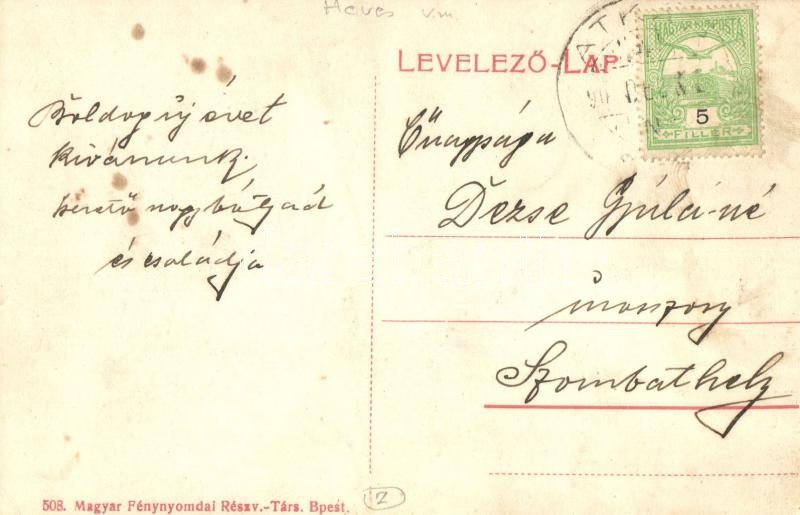 Heves v.m.
LEVELEZŐ-LAP
MAGYAR KIR. POSTA
5
FILLÉR
Boldog új évet
kívánunk.
szerető nagybátyád
és családja
Őnagysága
Dezse Gyula-né
úrasszony
Szombathely
508. Magyar Fénynyomdai Részv.-Társ. Bpest.
2